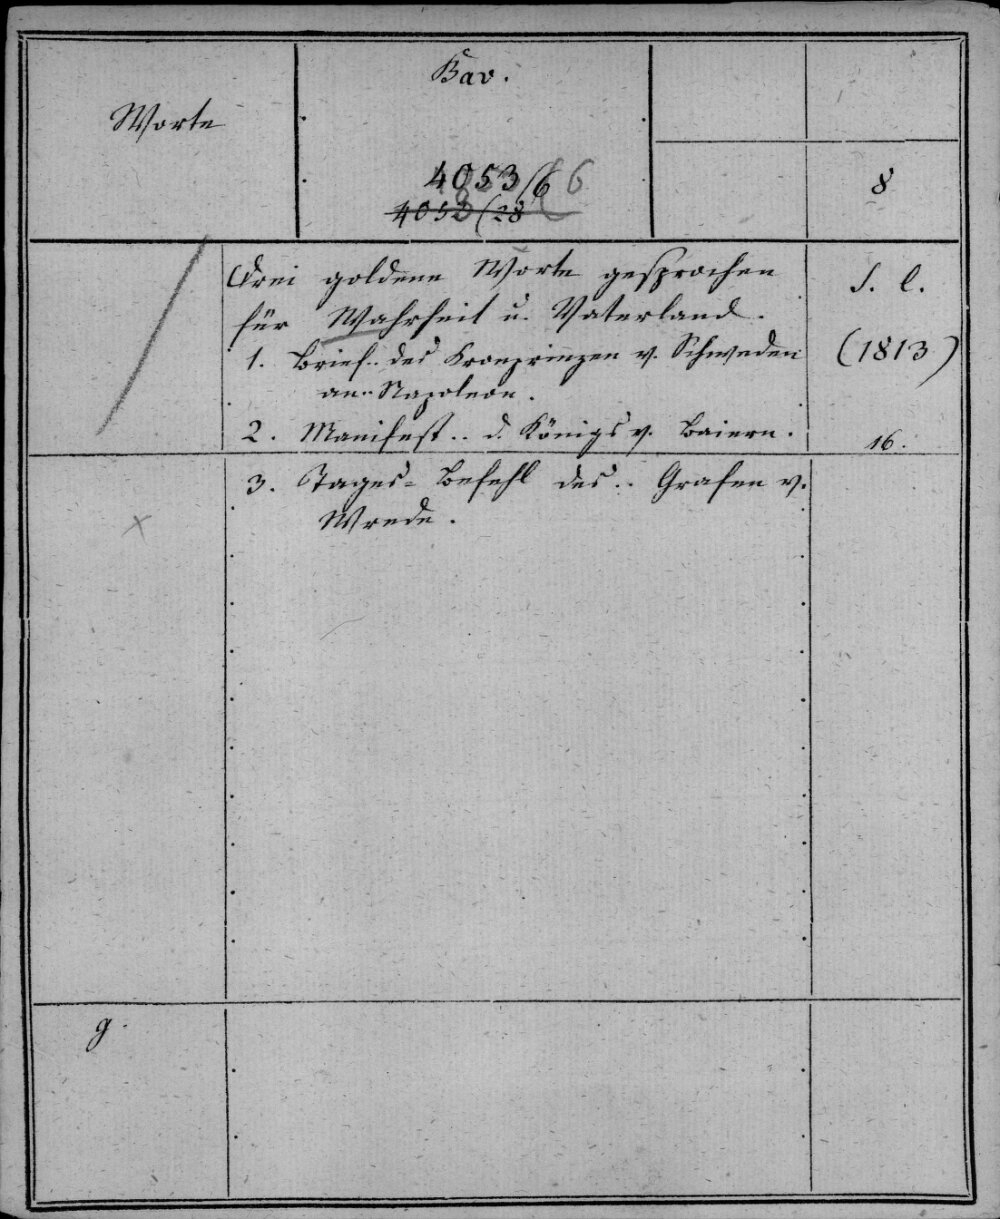 Bav.
Worte
4053/6 6
4052(28
8
Drei goldene Worte gesprochen
für Wahrheit u. Vaterland.
S. l.
1. Brief.. des Kronprinzen v. Schweden
(1813)
an.. Napoleon.
2. Manifest.. d. Königs v. Baiern.
16.
3. Tages-Befehl des.. Grafen v.
Wrede.
g.